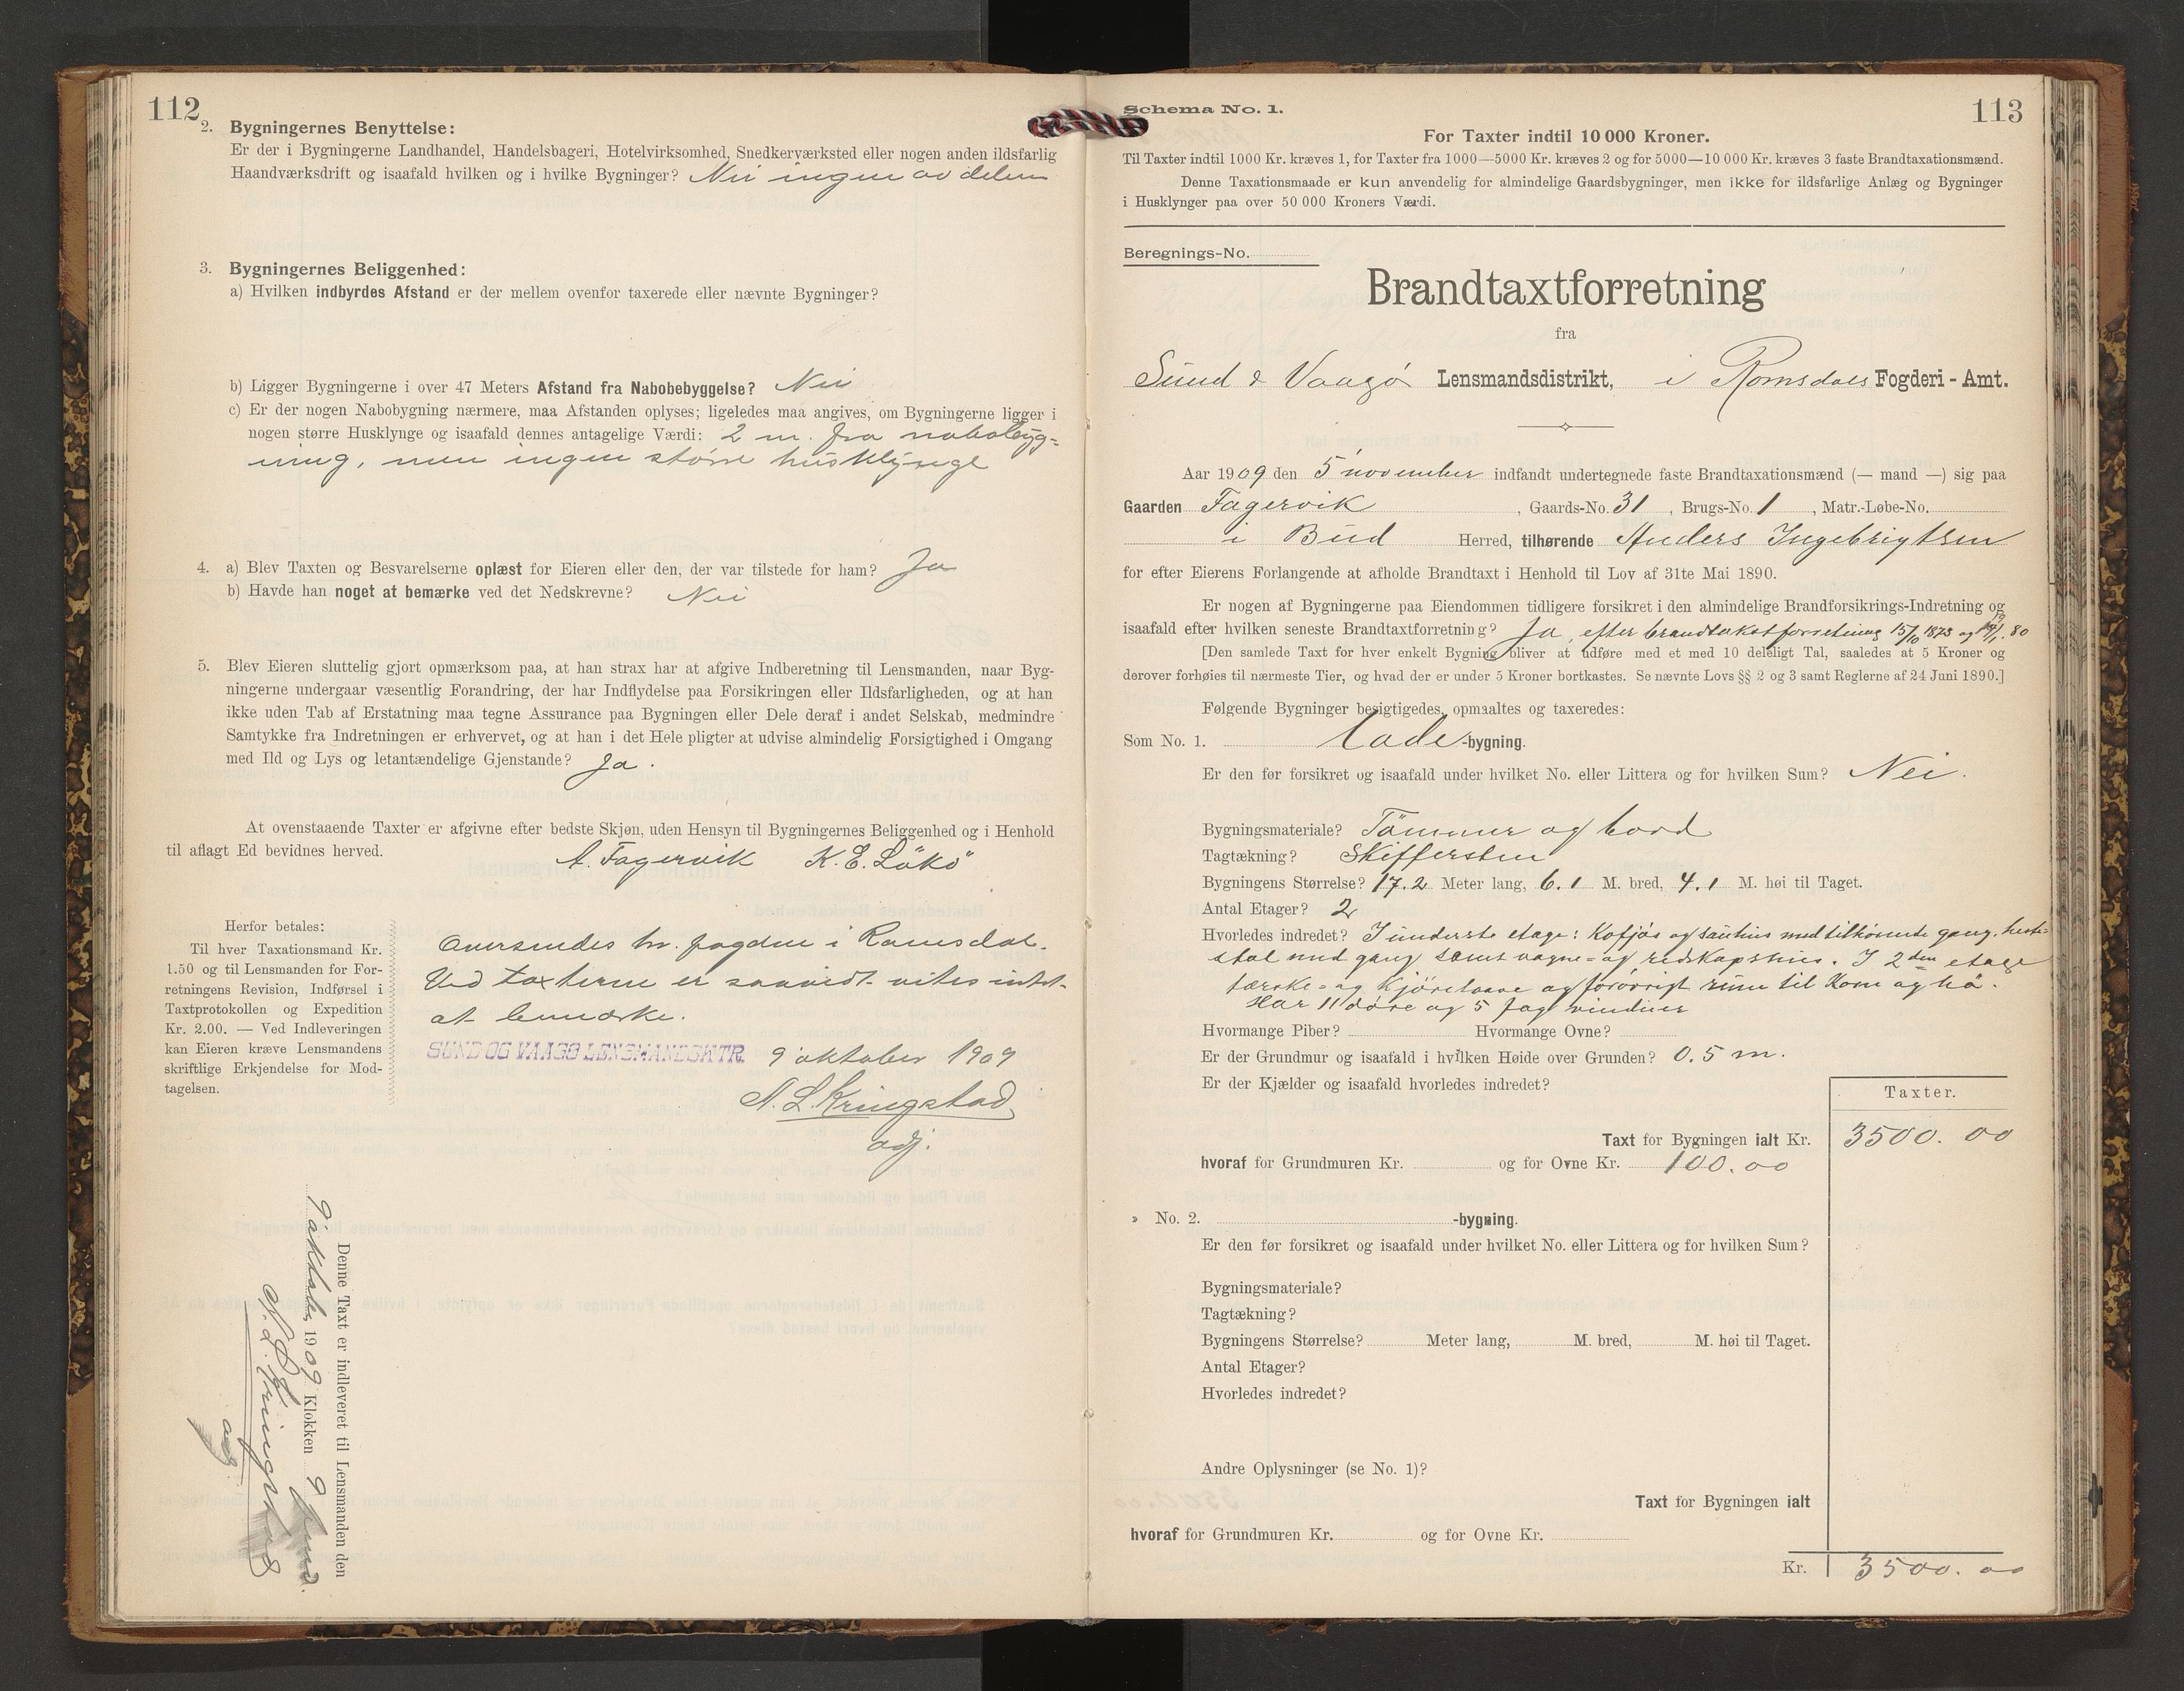 112
2. Bygningernes Benyttelse:
Er der i Bygningerne Landhandel, Handelsbageri, Hotelvirksomhed, Snedkerværksted eller nogen anden ildsfarlig
Haandværksdrift og isaafald hvilken og i hvilke Bygninger? Nei ingen av delene
3. Bygningernes Beliggenhed:
a) Hvilken indbyrdes Afstand er der mellem ovenfor taxerede eller nævnte Bygninger?
b) Ligger Bygningerne i over 47 Meters Afstand fra Nabobebyggelse? Nei
c) Er der nogen Nabobygning nærmere, maa Afstanden oplyses; ligeledes maa angives, om Bygningerne ligger i
nogen større Husklynge og isaafald dennes antagelige Værdi: 2 m. fra nabobyg=
ning, men ingen större husklynge
4. a) Blev Taxten og Besvarelserne oplæst for Eieren eller den, der var tilstede for ham? Ja
b) Havde han noget at bemærke ved det Nedskrevne? Nei
5. Blev Eieren sluttelig gjort opmærksom paa, at han strax har at afgive Indberetning til Lensmanden, naar Byg-
ningerne undergaar væsentlig Forandring, der har Indflydelse paa Forsikringen eller Ildsfarligheden, og at han
ikke uden Tab af Erstatning maa tegne Assurance paa Bygningen eller Dele deraf i andet Selskab, medmindre
Samtykke fra Indretningen er erhvervet, og at han i det Hele pligter at udvise almindelig Forsigtighed i Omgang
med Ild og Lys og letantændelige Gjenstande? Ja.
At ovenstaaende Taxter er afgivne efter bedste Skjøn, uden Hensyn til Bygningernes Beliggenhed og i Henhold
til aflagt Ed bevidnes herved.
A. Fagervik K. E. Lökö
Herfor betales:
Til hver Taxationsmand Kr.
1.50 og til Lensmanden for For-
retningens Revision, Indførsel i
Taxtprotokollen og Expedition
Kr. 2.00. — Ved Indleveringen
kan Eieren kræve Lensmandens
skriftlige Erkjendelse for Mod-
tagelsen.
Oversendes hr. fogden i Romsdal.
Ved taxterne er saavidt vites intet
at bemærke.
SUND OG VAAGØ LENSMANDSKTR. 9 oktober 1909
N. L. Kringstad
adj.
Denne Taxt er indleveret til Lensmanden den
9 oktober 1909 Klokken 9 fmd.
N. L. Kringstad
adj.
113
Schema No. 1.
For Taxter indtil 10 000 Kroner.
Til Taxter indtil 1000 Kr. kræves 1, for Taxter fra 1000—5000 Kr. kræves 2 og for 5000—10 000 Kr. kræves 3 faste Brandtaxationsmænd.
Denne Taxationsmaade er kun anvendelig for almindelige Gaardsbygninger, men ikke for ildsfarlige Anlæg og Bygninger
i Husklynger paa over 50 000 Kroners Værdi.
Beregnings-No.
Brandtaxtforretning
fra
Sund & Vaagø Lensmandsdistrikt, i Romsdals Fogderi - Amt.
Aar 1909 den 5 november indfandt undertegnede faste Brandtaxationsmænd (— mand —) sig paa
Gaarden Fagervik, Gaards-No. 31, Brugs-No. 1, Matr.-Løbe-No.
i Bud Herred, tilhørende Anders Ingebrigtsen
for efter Eierens Forlangende at afholde Brandtaxt i Henhold til Lov af 31te Mai 1890.
Er nogen af Bygningerne paa Eiendommen tidligere forsikret i den almindelige Brandforsikrings-Indretning og
isaafald efter hvilken seneste Brandtaxtforretning? Ja, efter brandtakstforretning 15/10 1873 og 80
[Den samlede Taxt for hver enkelt Bygning bliver at udføre med et med 10 deleligt Tal, saaledes at 5 Kroner og
derover forhøies til nærmeste Tier, og hvad der er under 5 Kroner bortkastes. Se nævnte Lovs §§ 2 og 3 samt Reglerne af 24 Juni 1890.]
Følgende Bygninger besigtigedes, opmaaltes og taxeredes:
Som No. 1. Lade-bygning.
Er den før forsikret og isaafald under hvilket No. eller Littera og for hvilken Sum? Nei.
Bygningsmateriale? Tömmer og bord
Tagtækning? Skiffersten
Bygningens Størrelse? 17.2 Meter lang, 6.1 M. bred, 4.1 M. høi til Taget.
Antal Etager? 2
Hvorledes indretet? I underste etage: Kofjös og sauhus med tilhörende gang, heste=
stal med gang samt vogne= og redskapshus. I 2den etage
tærske= og kjörelaave og forövrigt rum til korn og hö.
Har 11 döre og 5 fag vinduer
Hvormange Piber? Hvormange Ovne?
Er der Grundmur og isaafald i hvilken Høide over Grunden? 0.5 m.
Er der Kjælder og isaafald hvorledes indredet?
Taxter.
Taxt for Bygningen ialt Kr. 3500.00
hvoraf for Grundmuren Kr. og for Ovne Kr. 100.00
» No. 2. -bygning.
Er den før forsikret og isaafald under hvilket No. eller Littera og for hvilken Sum?
Bygningsmateriale?
Tagtækning?
Bygningens Størrelse? Meter lang, M. bred, M. høi til Taget.
Antal Etager?
Hvorledes indredet?
Andre Oplysninger (se No. 1)?
Taxt for Bygningen ialt
hvoraf for Grundmuren Kr. og for Ovne Kr.
Kr. 3500.00